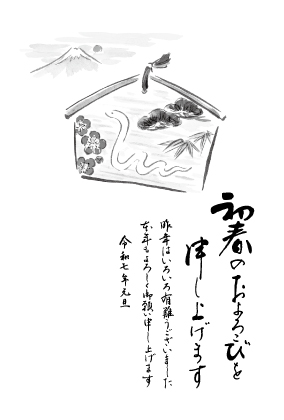 初春のおよろこびを
申し上げます
昨年はいろいろ有難うございました
本年もよろしく御願い申し上げます
令和七年元旦